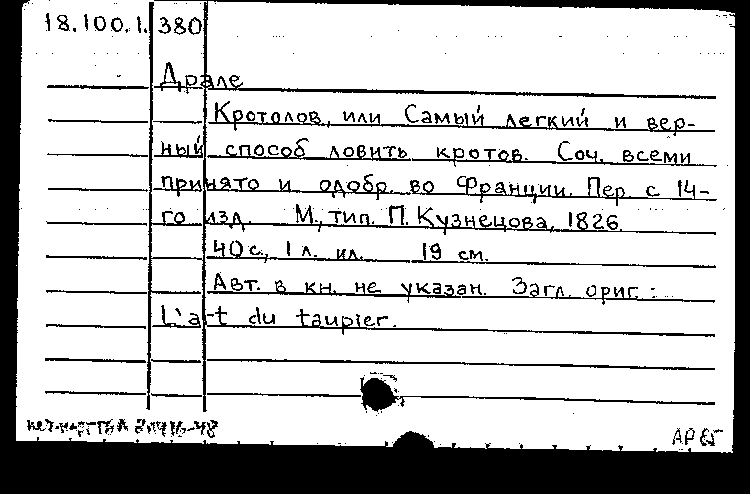 18.100.1.380
Драле
Кротолов, или Самый легкий и вер-
ный способ ловить кротов. Соч. всеми
принято и одобр. во Франции. Пер. с 14-
го изд. М., тип. П. Кузнецова, 1826.
40 с., 1 л. ил. 19 см.
Авт. в кн. не указан. Загл. ориг.:
L'art du taupier.